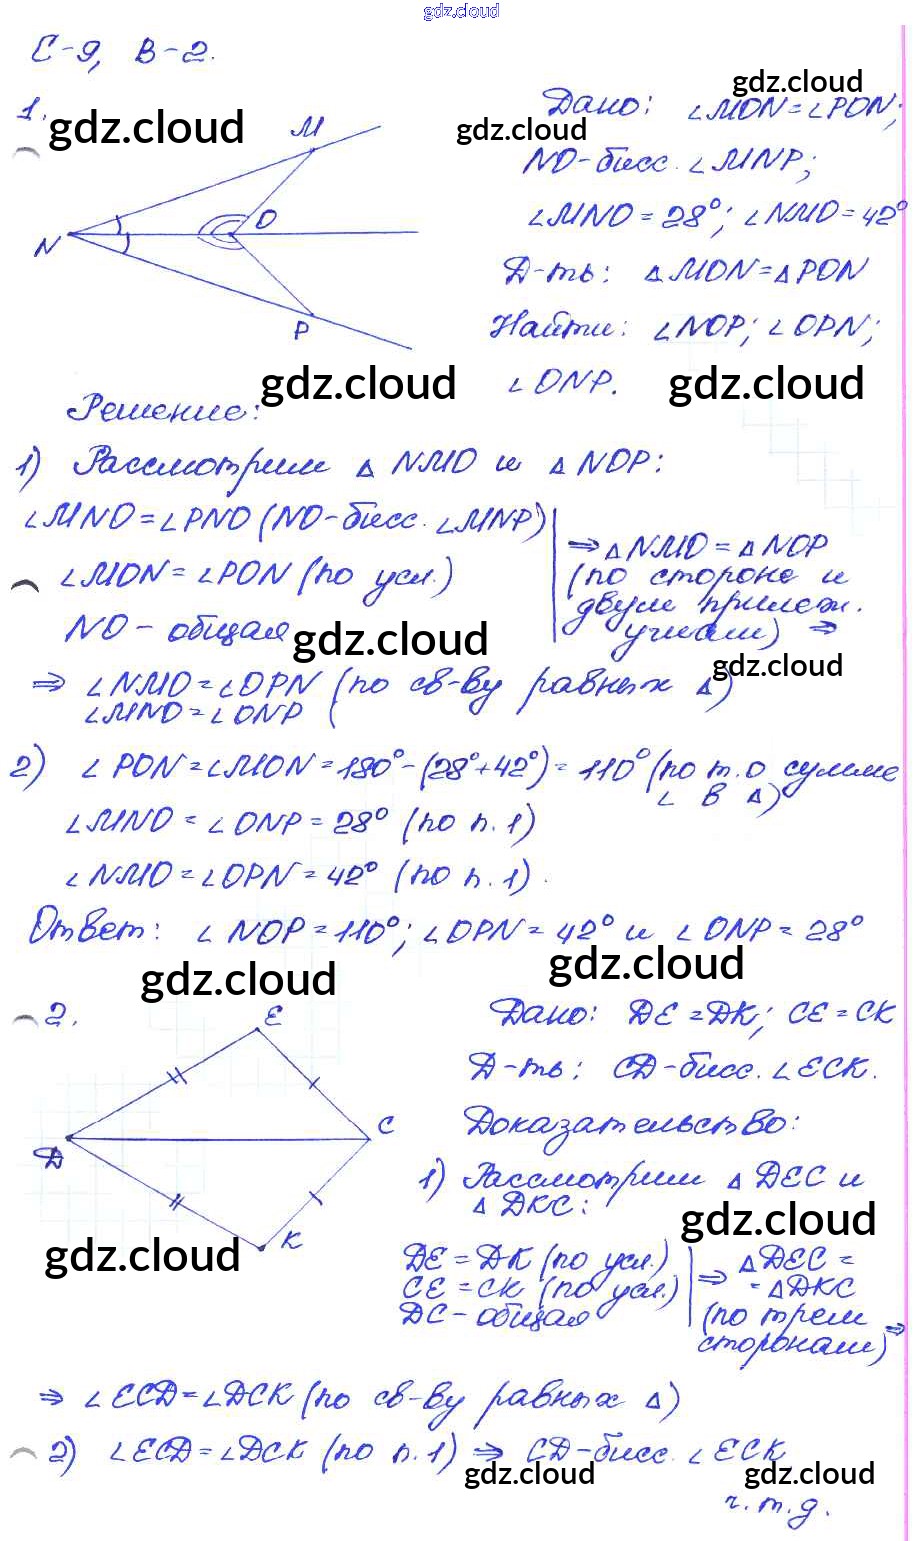 gdz.cloud
С-9, В-2.
gdz.cloud
1. gdz.cloud
gdz.cloud
M
O
N
P
Дано: ∠MON=∠PON;
NO-бисс. ∠MNP;
∠MNO=28°; ∠NMO=42°
Д-ть: △MON=△PON
Найти: ∠NOP; ∠OPN;
∠ONP.
gdz.cloud gdz.cloud
Решение:
1) Рассмотрим △NMO и △NOP:
∠MNO=∠PNO (NO-бисс. ∠MNP)
∠MON=∠PON (по усл.)
NO-общая
⇒ △NMO=△NOP
(по стороне и
двум прилеж.
углам) ⇒
gdz.cloud
gdz.cloud
⇒ ∠NMO=∠OPN (по св-ву равных △)
∠MNO=∠ONP (
2) ∠PON=∠MON=180°-(28°+42°)=110° (по т. о сумме
∠ в △)
∠MNO=∠ONP=28° (по п.1)
∠NMO=∠OPN=42° (по п.1).
Ответ: ∠NOP=110°; ∠OPN=42° и ∠ONP=28°
gdz.cloud gdz.cloud
2.
E
C
Д
K
gdz.cloud
Дано: ДE=ДK; CE=CK
Д-ть: CД-бисс. ∠ECK.
Доказательство:
1) Рассмотрим △ДEC и
△ДKC:
gdz.cloud
ДE=ДK (по усл.)
CE=CK (по усл.)
ДC-общая
⇒ △ДEC=
=△ДKC
(по трем
сторонам) ⇒
⇒ ∠ECД=∠ДCK (по св-ву равных △)
2) ∠ECД=∠ДCK (по п.1) ⇒ CД-бисс. ∠ECK
gdz.cloud gdz.cloud
ч.т.д.